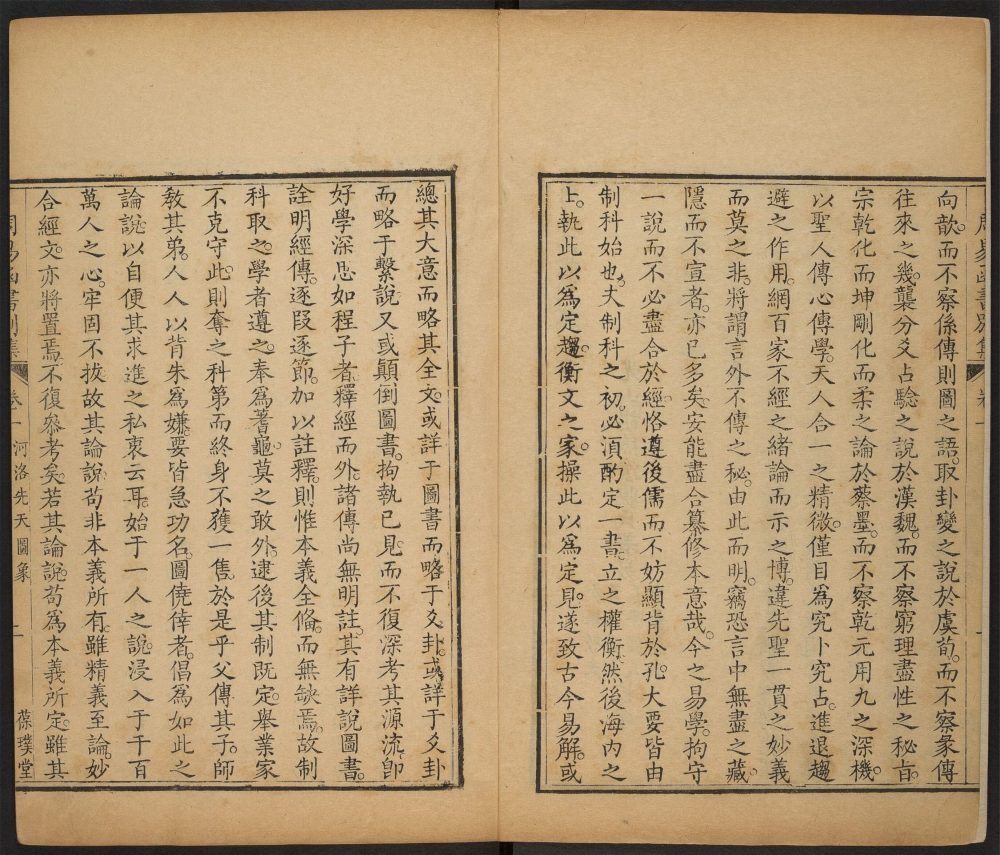 周易函書別集 卷一
向歆而不察係傳則圖之語取卦變之說於虞荀而不察彖傳
往來之幾襲分爻占驗之說於漢魏而不察窮理盡性之秘旨
宗乾化而坤剛化而柔之論於蔡墨而不察乾元用九之深機
以聖人傳心傳學天人合一之精微僅目為究卜究占進退趨
避之作用網百家不經之緒論而示之博違先聖一貫之妙義
而莫之非將謂言外不傳之秘由此而明竊恐言中無盡之藏
隱而不宣者亦已多矣安能盡合纂修本意哉今之易學拘守
一說而不必盡合於經恪遵後儒而不妨顯背於孔大要皆由
制科始也夫制科之初必湏酌定一書立之權衡然後海内之
上執此以為定趨衡文之家操此以為定見遂致古今易解或
總其大意而略其全文或詳于圖書而略于爻卦或詳于爻卦
而略于繫說又或顛倒圖書拘執已見而不復深考其源流卽
好學深思如程子者釋經而外諸傳尚無明註其有詳說圖書
詮明經傳逐段逐節加以註釋則惟本義全俻而無缺焉故制
科取之學者遵之奉為蓍龜莫之敢外逮後其制既定舉業家
不克守此則奪之科第而終身不獲一售於是乎父傳其子師
教其弟人人以背朱為嫌要皆急功名圖僥倖者倡為如此之
論說以自便其求進之私衷云耳始于一人之說浸入于千百
萬人之心牢固不拔故其論說苟非本義所有雖精義至論妙
合經文亦將置焉不復叅考矣若其論說苟為本義所定雖其
周易函書別集 卷一 河洛先天圖象 二 葆璞堂